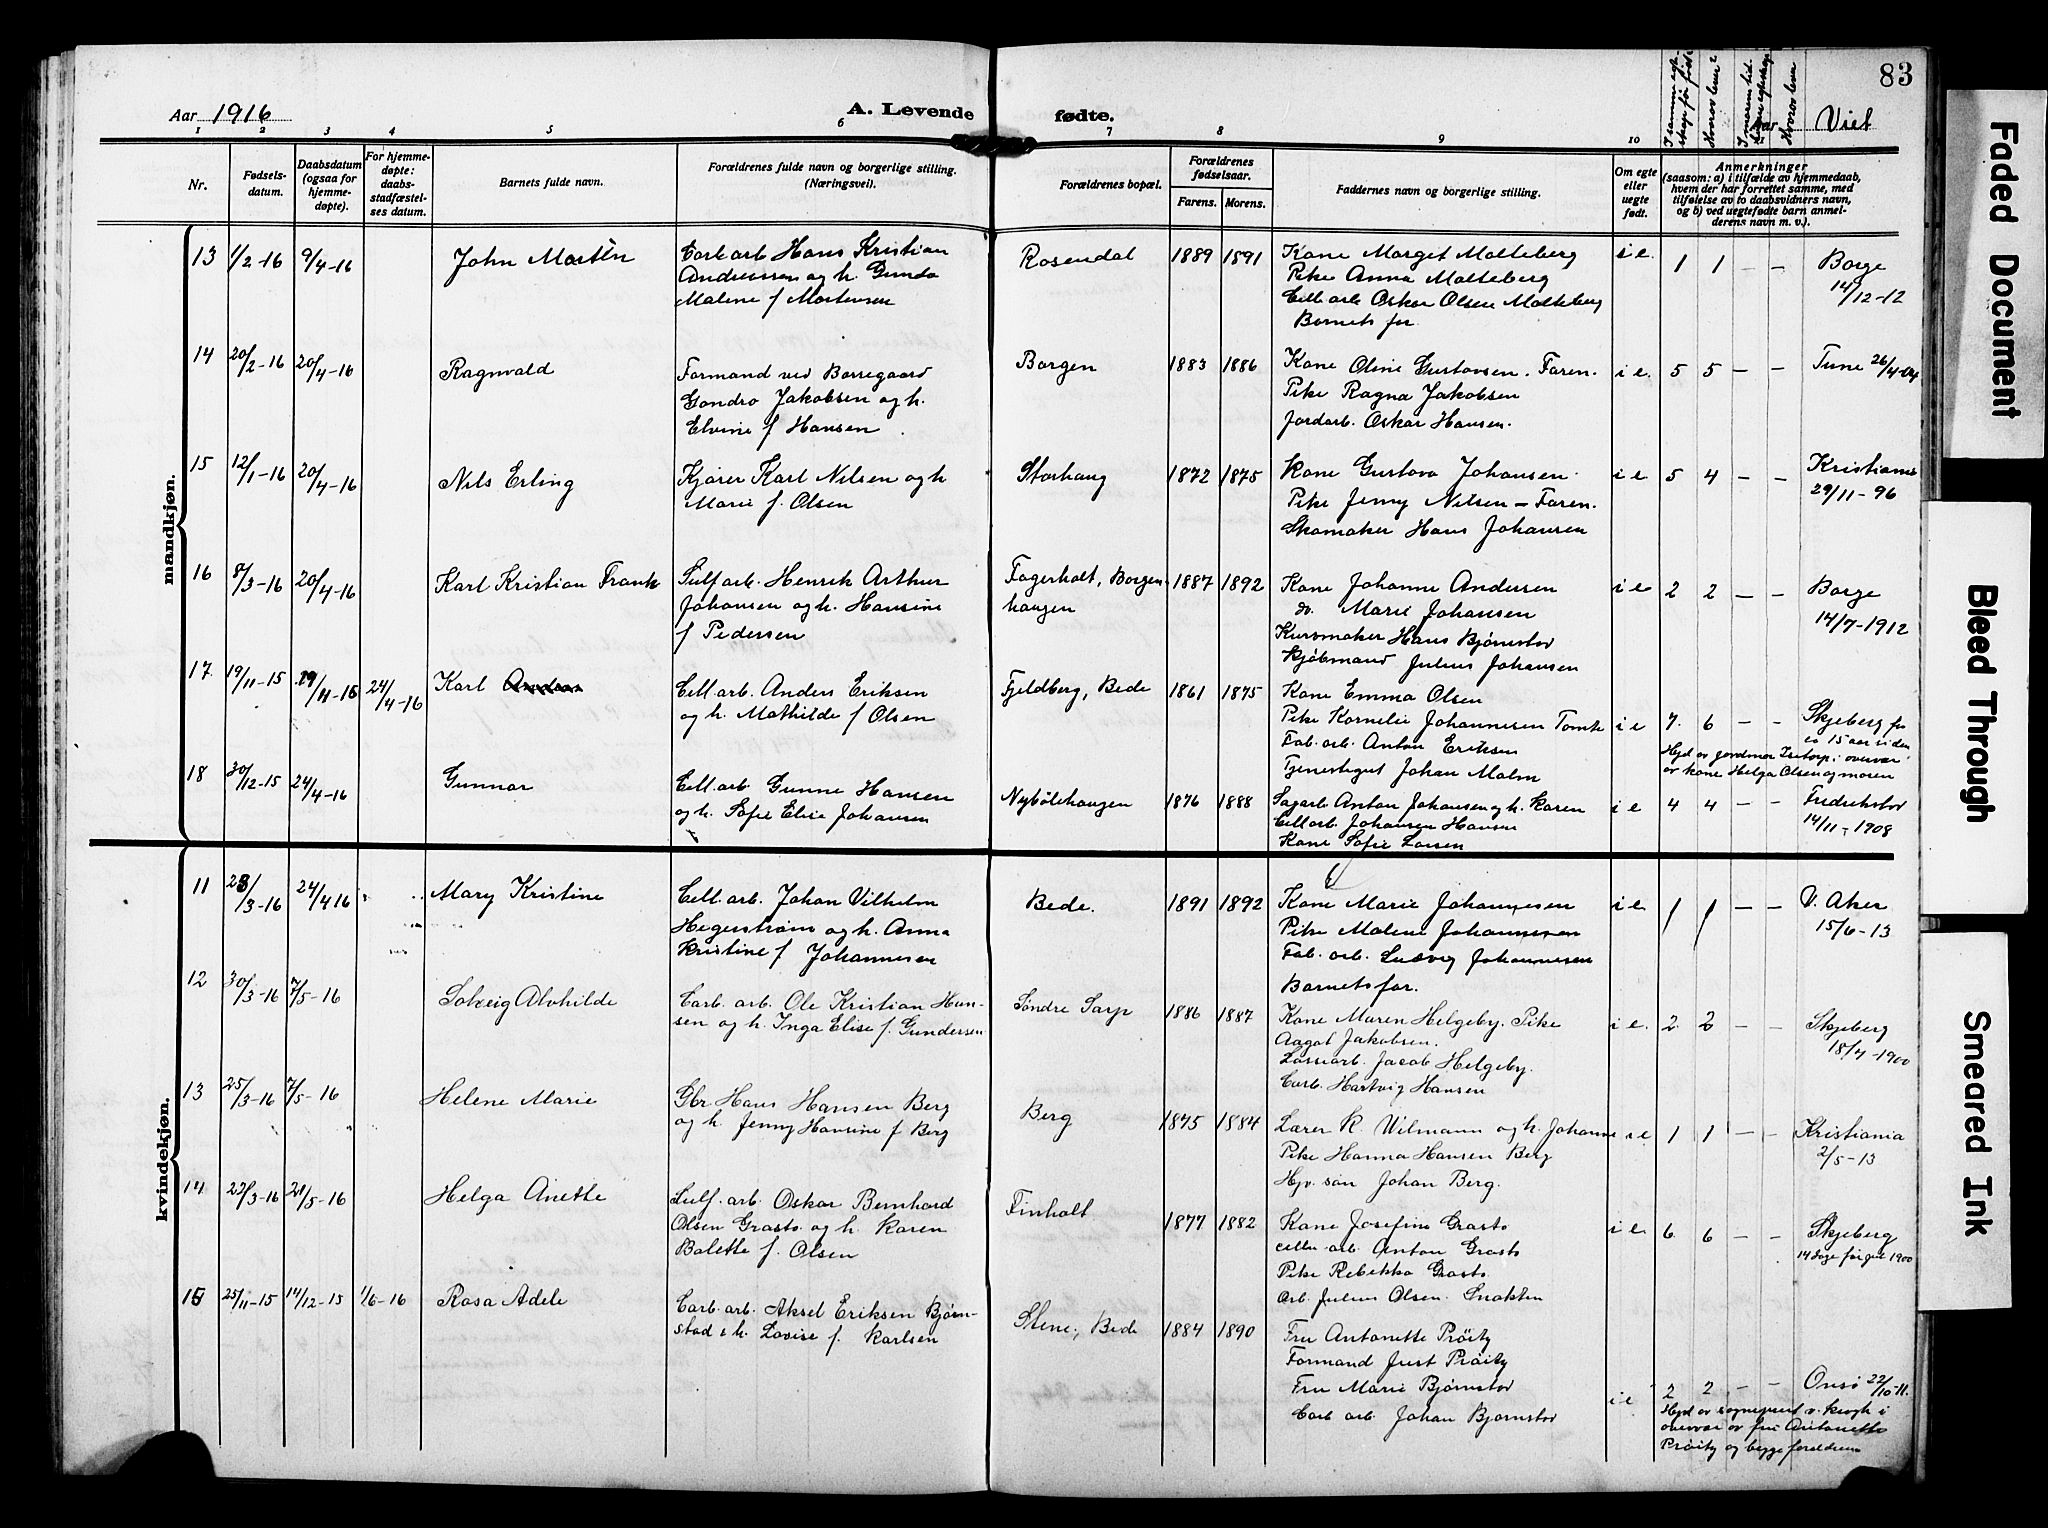 83
Aar 1916
A. Levende fødte.
Viet
1 2 3 4 5 6 7 8 9 10
Nr.
Fødsels-
datum.
Daabsdatum
(ogsaa for
hjemme-
døpte).
For hjemme-
døpte:
daabs-
stadfæstel-
ses datum.
Barnets fulde navn.
Forældrenes fulde navn og borgerlige stilling.
(Næringsvei).
Forældrenes bopæl.
Forældrenes
fødselsaar.
Farens. Morens.
Faddernes navn og borgerlige stilling.
Om egte
eller
uegte
født.
Anmerkninger
(saasom: a) i tilfælde av hjemmedaab,
hvem der har forrettet samme, med
tilføielse av to daabsvidners navn,
og b) ved uegtefødte barn anmel-
derens navn m. v.).
mandkjøn.
13 1/2-16 9/4-16 John Mortèn
Carb arb Hans Kristian
Andreassen og h. Gunda
Malene f Mortensen
Rosendal 1889 1891
Kone Margit Molteberg
Pike Anna Molteberg
Cell. arb Oskar Olsen Molteberg
Barnets far
i e. 1 1 - - Borge
14/12-12
14 20/2-16 20/4-16 Ragnvald
Formand ved Borregaard
Gondro Jakobsen og h.
Elvine f Hansen
Borgen 1883 1886
Kone Oline Gustavsen. Faren.
Pike Ragna Jakobsen
Jordarb. Oskar Hansen.
i e. 5 5 - - Tune 26/4-04
15 12/1-16 20/4-16 Nils Erling
Kjører Karl Nilsen og h
Marie f. Olsen
Storhaug 1872 1875
Kone Gustava Johansen.
Pike Jenny Nilsen - Faren.
Skomaker Hans Johansen
i e 5 4 - - Kristiania
29/11-96
16 8/3-16 20/4-16 Karl Kristian Frank
Sulf arb. Henrik Arthur
Johansen og h. Hansine
f Pedersen
Fagerholt, Borgen-
haugen
1887 1892
Kone Johanne Andersen
do. Marie Johansen
Kurvmaker Hans Bjørnstad
Kjøbmand Julius Johansen
i e 2 2 - - Borge
14/7-1912
17. 19/11-15 29/11-15 24/4-16 Karl
Cell. arb. Anders Eriksen
og h. Mathilde f Olsen
Fjeldberg, Bede 1861 1875
Kone Emma Olsen
Pike Kornelie Johannesen Tomte
Fab. arb. Anton Eriksen
Tjenestegut Johan Malm
i e 7. 6 - - Skjeberg for
ca 15 aar siden
Hjd av jordmor Istorp, i overvær
av kone Helga Olsen og moren
18 30/12-15 24/4-16 Gunnar
Cell. arb. Gunne Hansen
og h. Sofie Elise Johansen
Nybølehaugen 1876 1888
Sagarb Anton Johansen og h. Karen
Cell arb. Johansen Hansen
Kone Sofie Larsen
i e 4 4 - - Fredrikstad
14/11-1908
kvindekjøn.
11 23/3-16 24/4 16 Mary Kristine
Cell. arb. Johan Vilhelm
Hegerstrøm og h. Anna
Kristine f Johannesen
Bede. 1891 1892
Kone Marie Johannesen
Pike Malene Johannesen
Fab. arb. Ludvig Johannesen
Barnets far.
i e 1 1 - - V. Aker
15/6-13
12 30/3-16 7/5-16 Solveig Alvhilde
Carb. arb. Ole Kristian Han-
sen og h. Inga Elise f. Gundersen
Søndre Sarp 1886 1887
Kone Maren Helgeby. Pike
Aagot Jakobsen.
Lossearb. Jacob Helgeby.
Carb. Hartvig Hansen
i e. 2 2 - - Skjeberg
18/7-1900
13 25/3-16 7/5-16 Helene Marie
Gbr. Hans Hansen Berg
og h. Jenny Hansine f Berg
Berg 1875 1884
Lærer K. Wilmann og h. Johanne
Pike Hanna Hansen Berg
Hjv. søn Johan Berg.
i e 1 1 - - Kristiania
2/5-13
14 23/3-16 21/5-16 Helga Anette
Sulf. arb. Oskar Bernhard
Olsen Grasto og h. Karen
Balette f. Olsen
Finholt 1877 1882
Kone Josefine Grasto
cellu. arb. Anton Grasto
Pike Rebekka Grasto
Arb. Julius Olsen.
i e 6. 6 - - Skjeberg
14 dage før jul 1900
15 25/11-15 14/12-15 1/6-16 Rosa Adele
Carb. arb. Aksel Eriksen Bjørn-
stad & h. Lovise f. Karlsen
Stene, Bede 1884 1890
Fru Antonette Prøitz
Formand Just Prøitz
Fru Marie Bjørnstad
Carb arb. Johan Bjørnstad
i e 2 2 - - Onsø 22/10-11.
Hjd av sogneprest v. Krogh i
overvær av fru Antonette
Prøitz og begge forældrene
Faded Document
Bleed Through
Smeared Ink